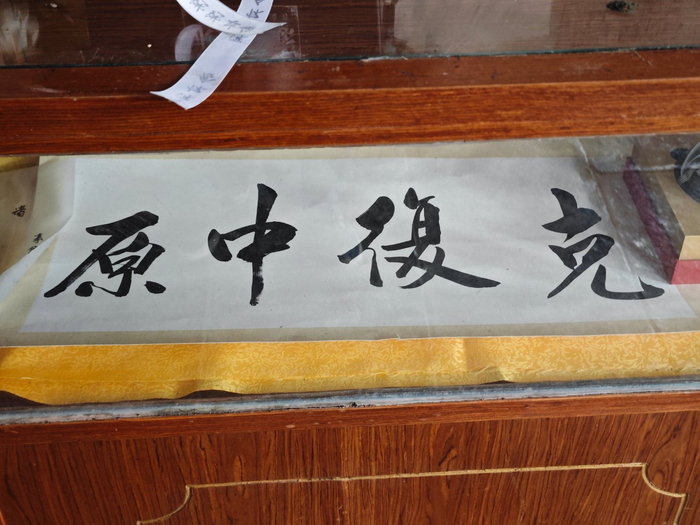 克復中原